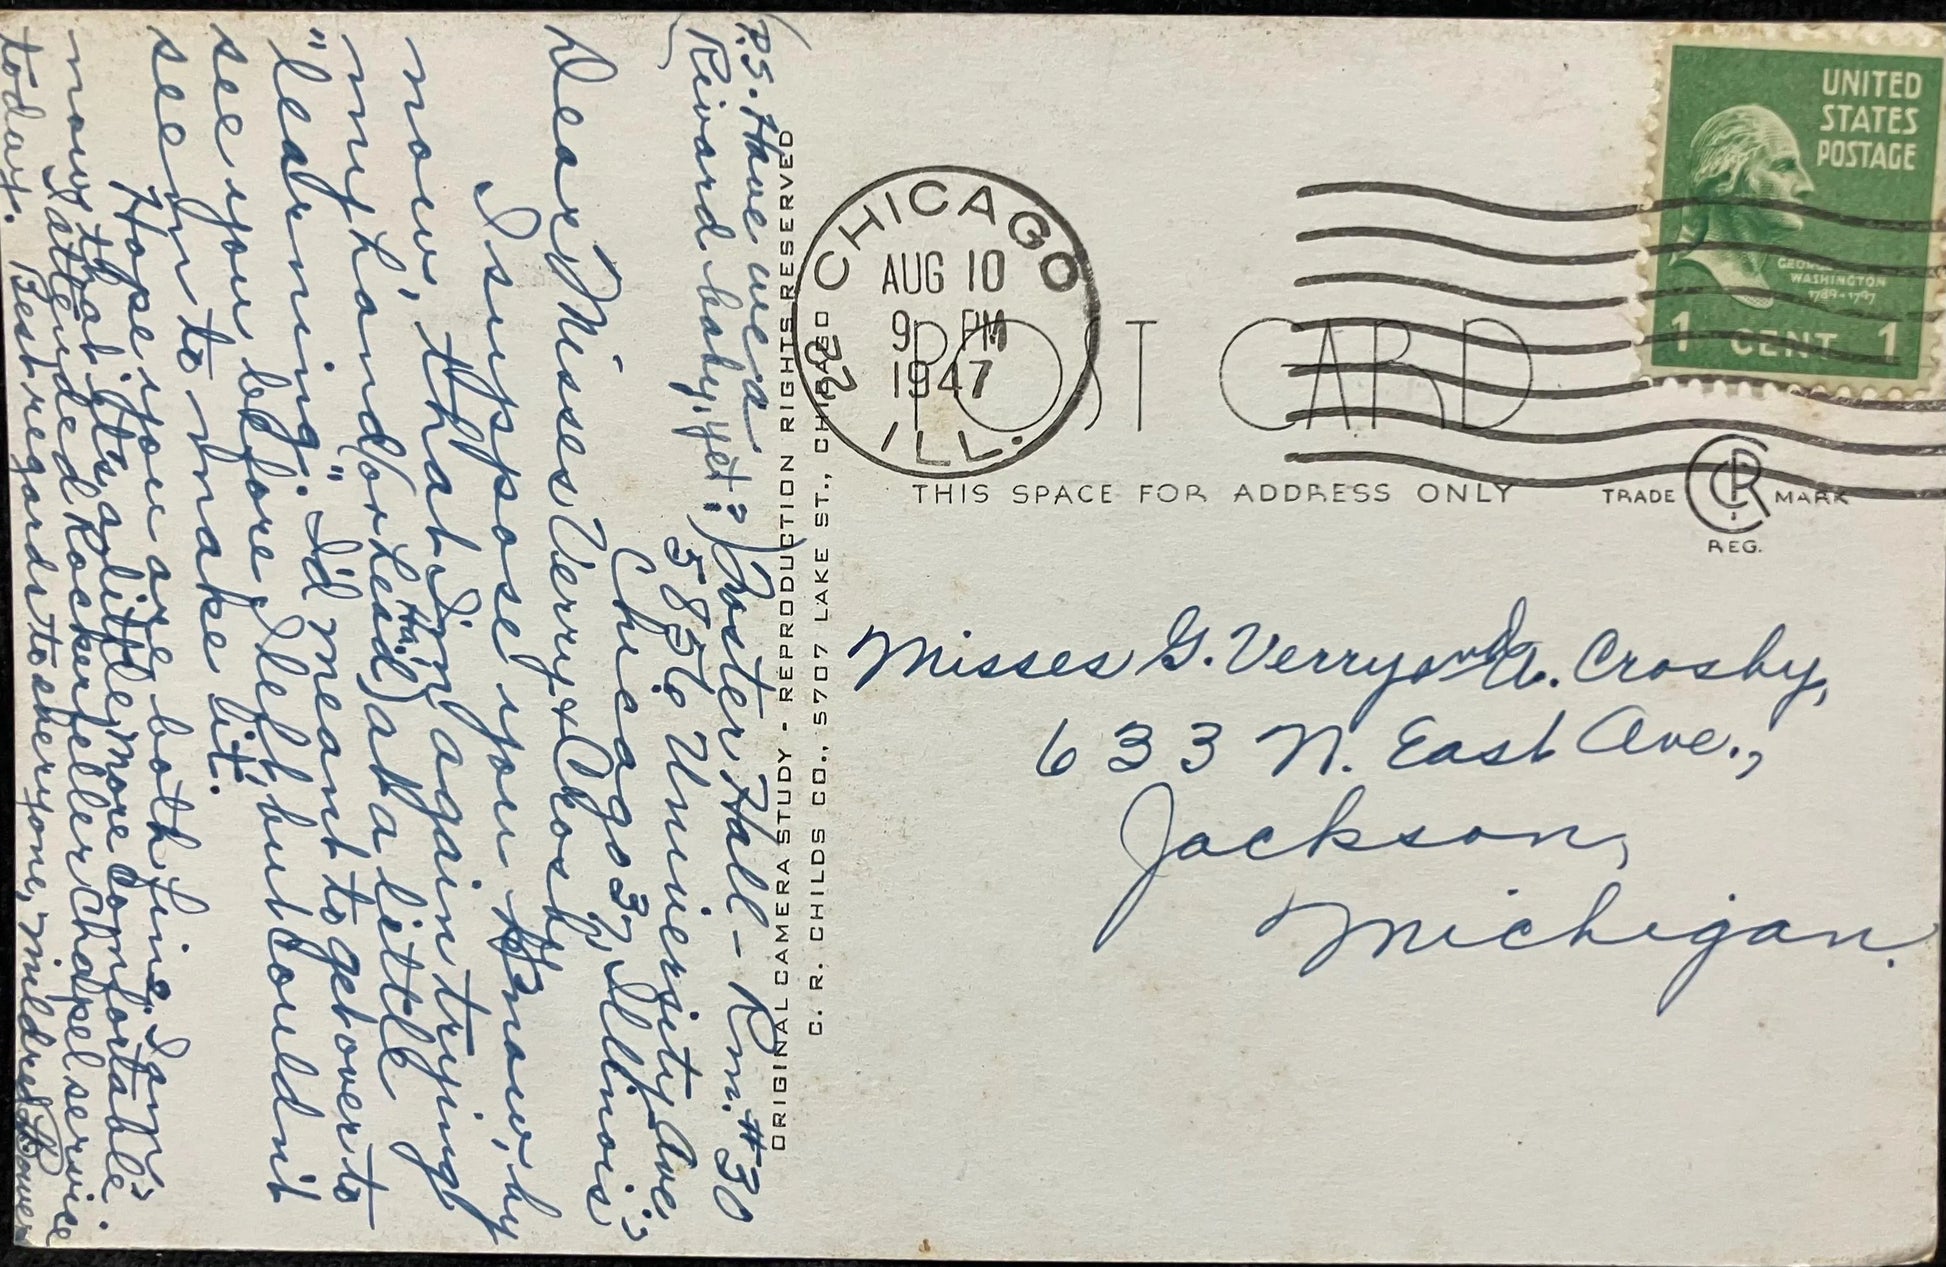 (P.S. Have we a
Rivard baby, yet?)
Foster Hall - Rm. #30
5836 University Ave.,
Chicago 37, Illinois
Dear Misses Verry & Crosby,
I suppose you know, by
now, that I'm again trying
my hand (or head, Ha!) at a little
"learning." I'd meant to get over to
see you before I left, but couldn't
seem to make it.
Hope you are both fine. I am,
now that it's a little more comfortable.
I attended Rockefeller Chapel service
today. Best regards to everyone, Mildred
ORIGINAL CAMERA STUDY - REPRODUCTION RIGHTS RESERVED
C. R. CHILDS CO., 5707 LAKE ST., CHICAGO
CHICAGO 22
AUG 10
9 PM
1947
ILL.
UNITED
STATES
POSTAGE
GEORGE
WASHINGTON
1789-1797
1 CENT 1
POST CARD
THIS SPACE FOR ADDRESS ONLY
TRADE CRC MARK
REG.
Misses G. Verry and A. Crosby,
633 N. East Ave.,
Jackson,
Michigan.